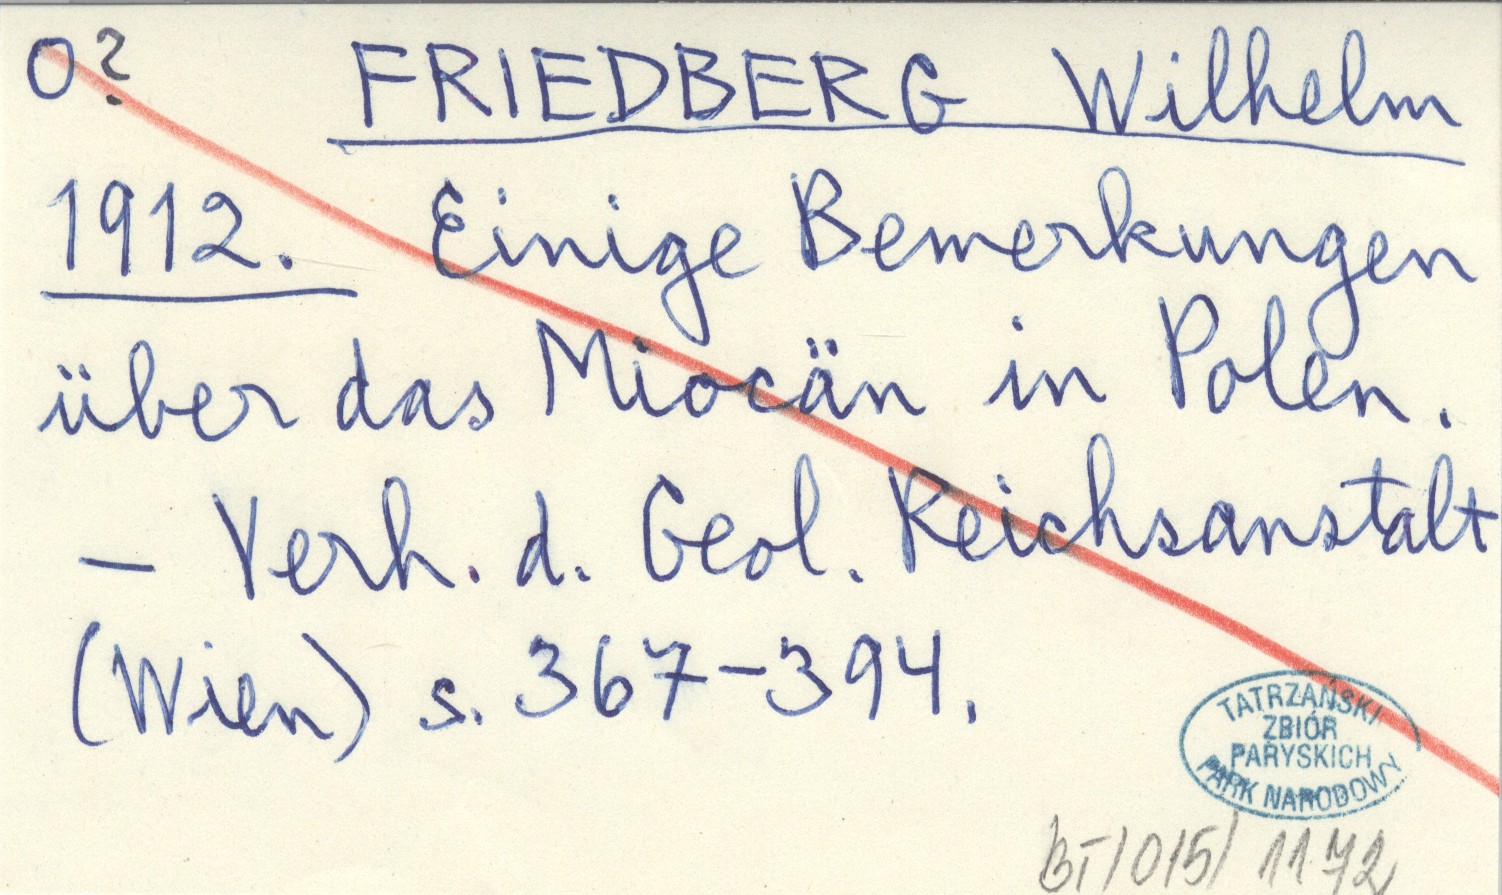 O? FRIEDBERG Wilhelm
1912. Einige Bemerkungen
über das Miocän in Polen.
– Verh. d. Geol. Reichsanstalt
(Wien) s. 367–394.
TATRZAŃSKI
ZBIÓR
PARYSKICH
PARK NARODOWY
BT/015/1172